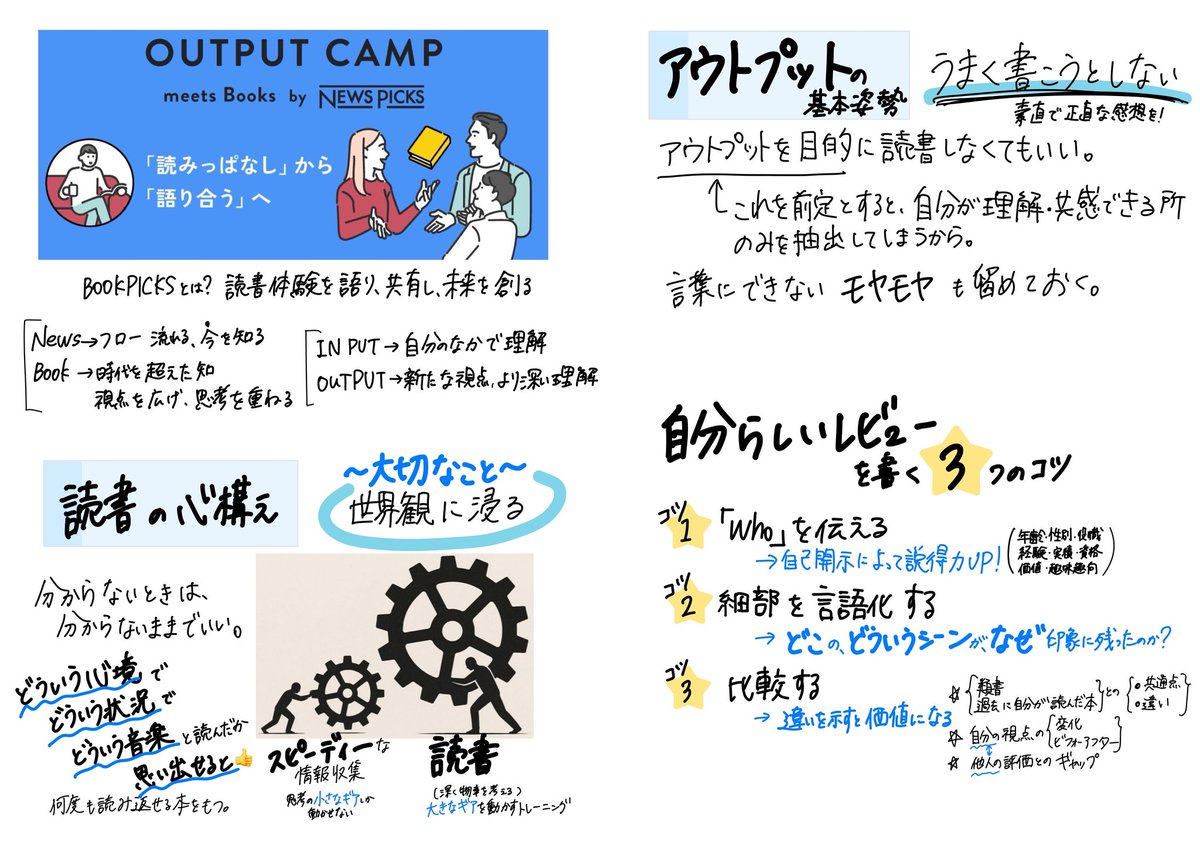 OUTPUT CAMP
meets Books by NEWSPICKS
「読みっぱなし」から
「語り合う」へ
BOOKPICKSとは? 読書体験を語り、共有し、未来を創る
News→フロー 流れる、今を知る
Book→時代を超えた知
視点を広げ、思考を重ねる
INPUT→自分のなかで理解
OUTPUT→新たな視点、より深い理解
読書の心構え
〜大切なこと〜
世界観に浸る
分からないときは、
分からないままでいい。
どういう心境で
どういう状況で
どういう音楽と読んだか
思い出せると👍
何度も読み返せる本をもつ。
スピーディーな
情報収集
思考の小さなギアしか
動かせない
読書
(深く物事を考える)
大きなギアを動かすトレーニング
アウトプットの
基本姿勢
うまく書こうとしない
素直で正直な感想を!
アウトプットを目的に読書しなくてもいい。
これを前定とすると、自分が理解・共感できる所
のみを抽出してしまうから。
言葉にできない モヤモヤ も留めておく。
自分らしいレビュー
を書く3つのコツ
コツ1 「Who」を伝える
→自己開示によって説得力UP!
(年齢・性別・役職
経験・実績・資格
価値・趣味趣向)
コツ2 細部を言語化する
→どこの、どういうシーンが、なぜ印象に残ったのか?
コツ3 比較する
→違いを示すと価値になる
☆{類書
過去に自分が読んだ本}との{・共通点
・違い}
☆自分の視点の{変化
ビフォーアフター}
☆他人の評価とのギャップ